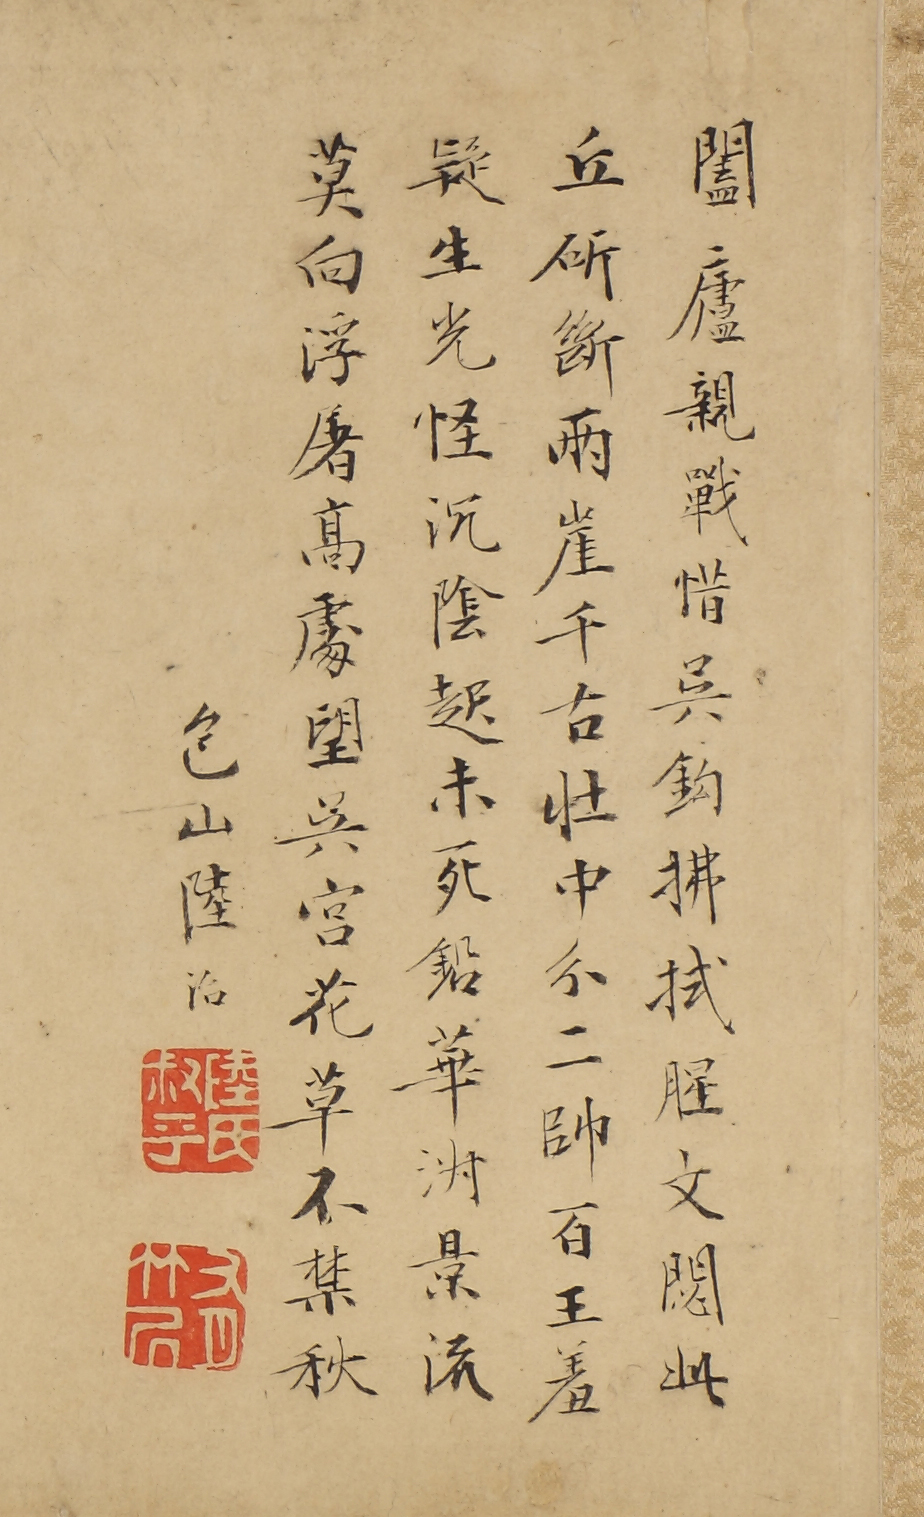 闔廬親戰惜吳鈎拂拭腥文閱此
丘斫斷兩崖千古壯中分二帥百王羞
疑生光怪沉陰起未死鉛華渊景流
莫向浮屠高處望吳宮花草不禁秋
包山陸治
陸氏叔平
有竹居